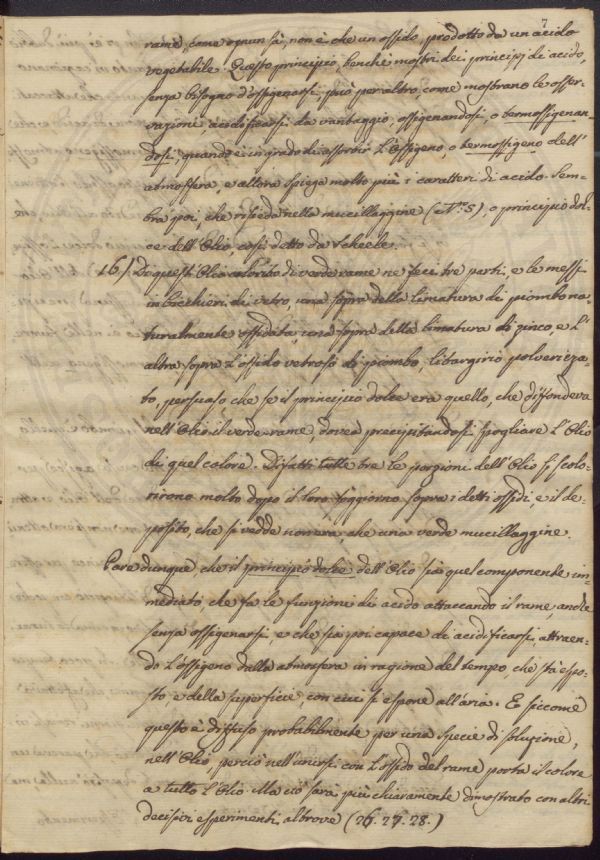 7
rame, come ognun sà, non è che un ossido, prodotto da un acido
vegetabile. Questo principio, benchè mostri dei principj di acido,
senza bisogno d'ossigenarsi, può per altro, come mostrano le osser-
vazioni acidificarsi da vantaggio, ossigenandosi, o termossigenan-
dosi, quando è in grado di assorbir l'Ossigeno, o termossigeno dell'
atmosfera, e allora spiega molto più i caratteri di acido. Sem-
bra poi, che risieda nella mucillaggine (N.º 5), o principio dol-
ce dell'Olio, così detto da Scheele.
16) Di quest'Olio colorito di verde rame ne feci tre parti, e le messi
in bicchieri di vetro, una sopra della limatura di piombo na-
turalmente ossidata, una sopra della limatura di zinco e l'
altra sopra l'ossido vetroso di piombo, litargirio polverizza-
to, persuaso, che se il principio dolce era quello, che diffondeva
nell'Olio il verde rame, dovea precipitandosi spogliare l'Olio
di quel colore. Difatti tutte tre le porzioni dell'Olio si scolo-
rirono molto dopo il loro soggiorno sopra i detti ossidi, e il de-
posito, che si vedde non era, che una verde mucillaggine.
Pare dunque, che il principio dolce dell'Olio sia quel componente im-
mediato, che fa le funzioni di acido attaccando il rame, anche
senza ossigenarsi, e che sia poi capace di acidificarsi attraen-
do l'ossigeno dalla atmosfera in ragione del tempo, che stà espo-
sto, e della superficie, con cui si espone all'aria. E siccome
questo è diffuso probabilmente per una specie di soluzione,
nell'Olio, perciò nell'unirsi con l'ossido del rame porta il colore
a tutto l'Olio. Ma ciò sarà più chiaramente dimostrato con altri
decisivi esperimenti altrove (26. 27. 28.)